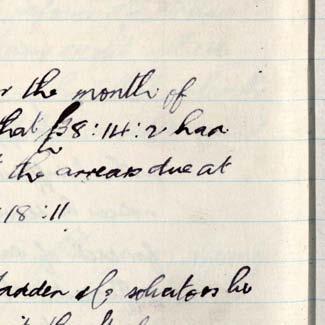 r the month of
hat £38:14:2 han
the arrears due at
18:11
Madden &c solicitors he